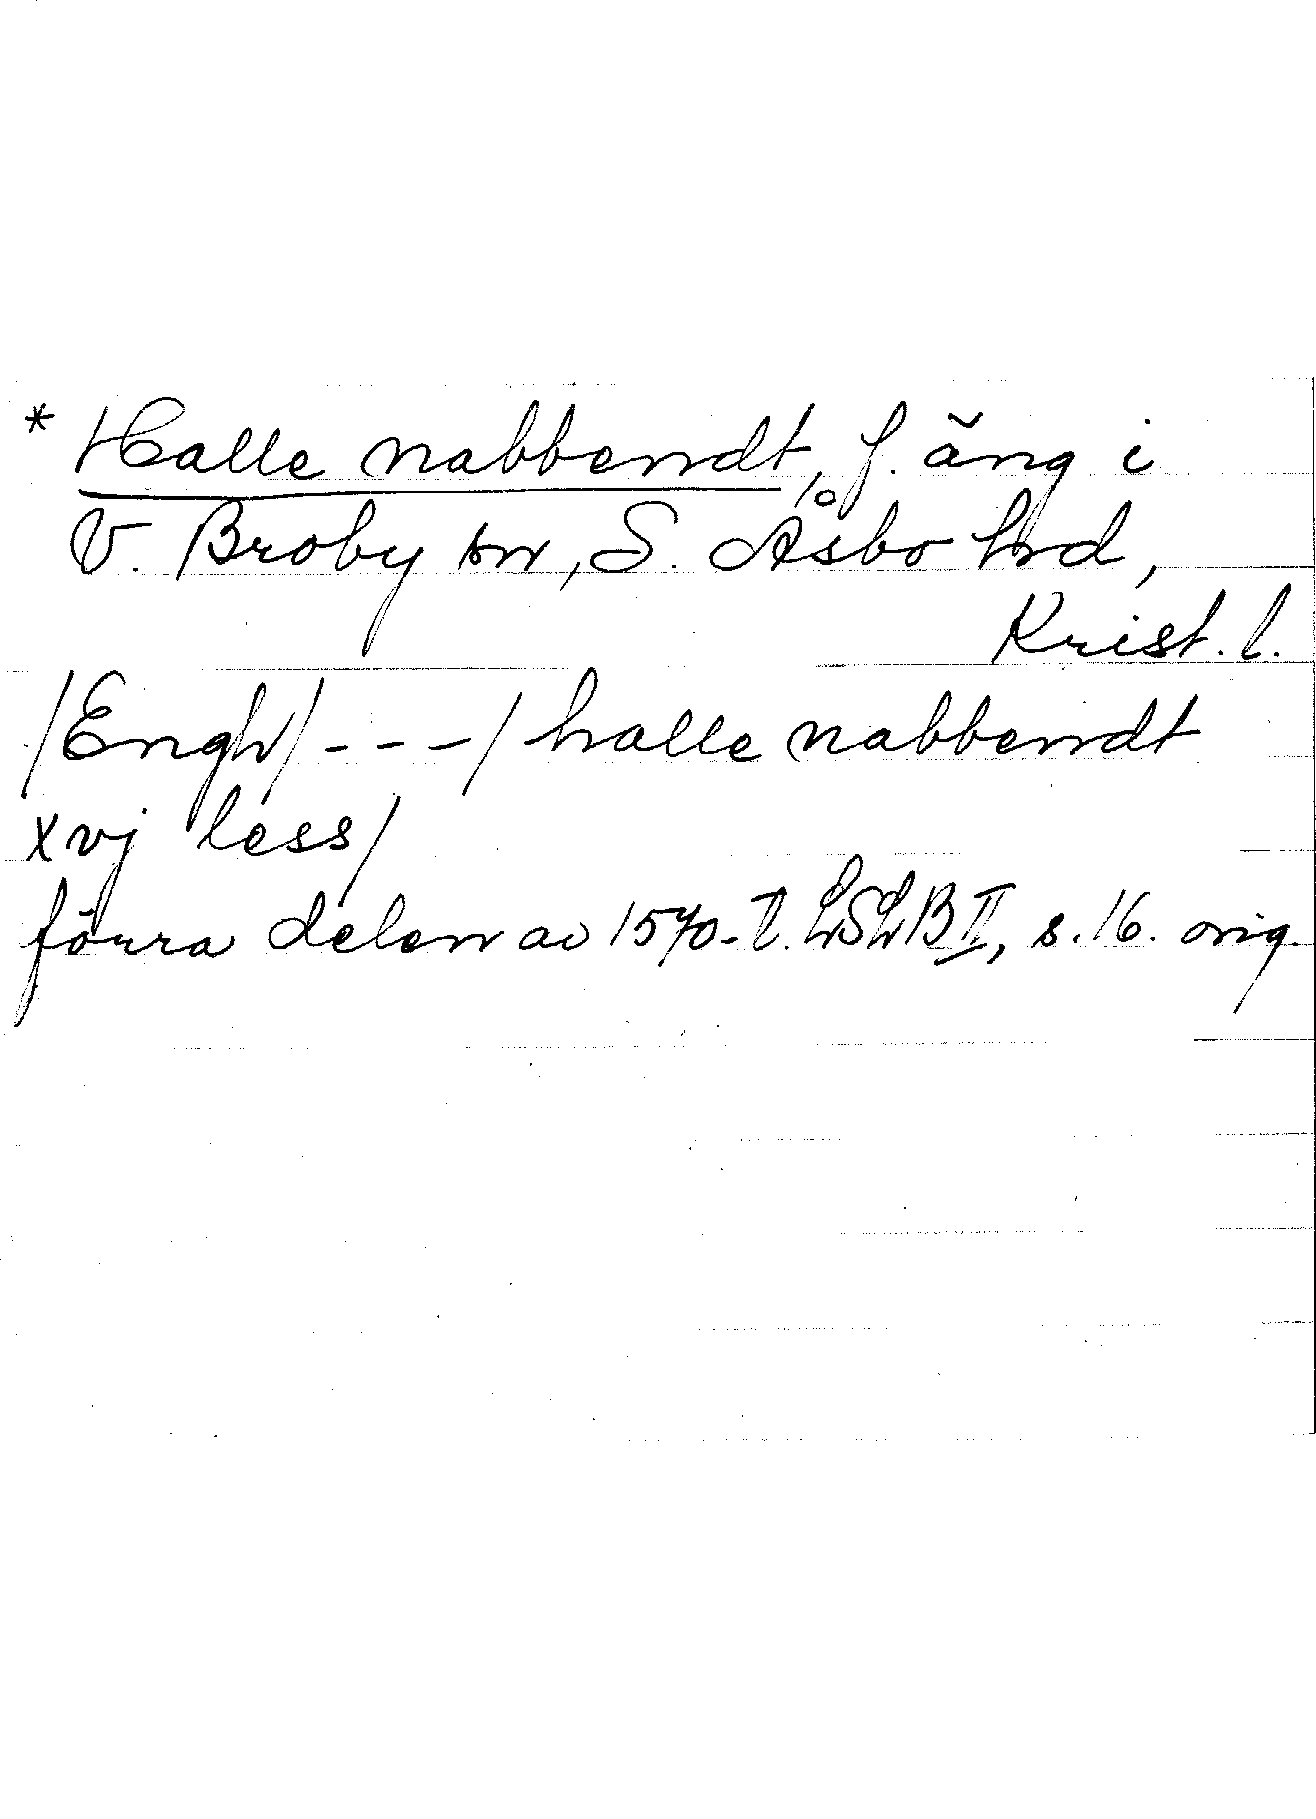 * Halle nabbendt, f. äng i
V. Broby sn, S. Åsbo hd,
Krist. l.
/Engh/ - - - / halle nabbendt
xvj less/
förra delen av 1570-t. LSLB II, s. 16. orig.